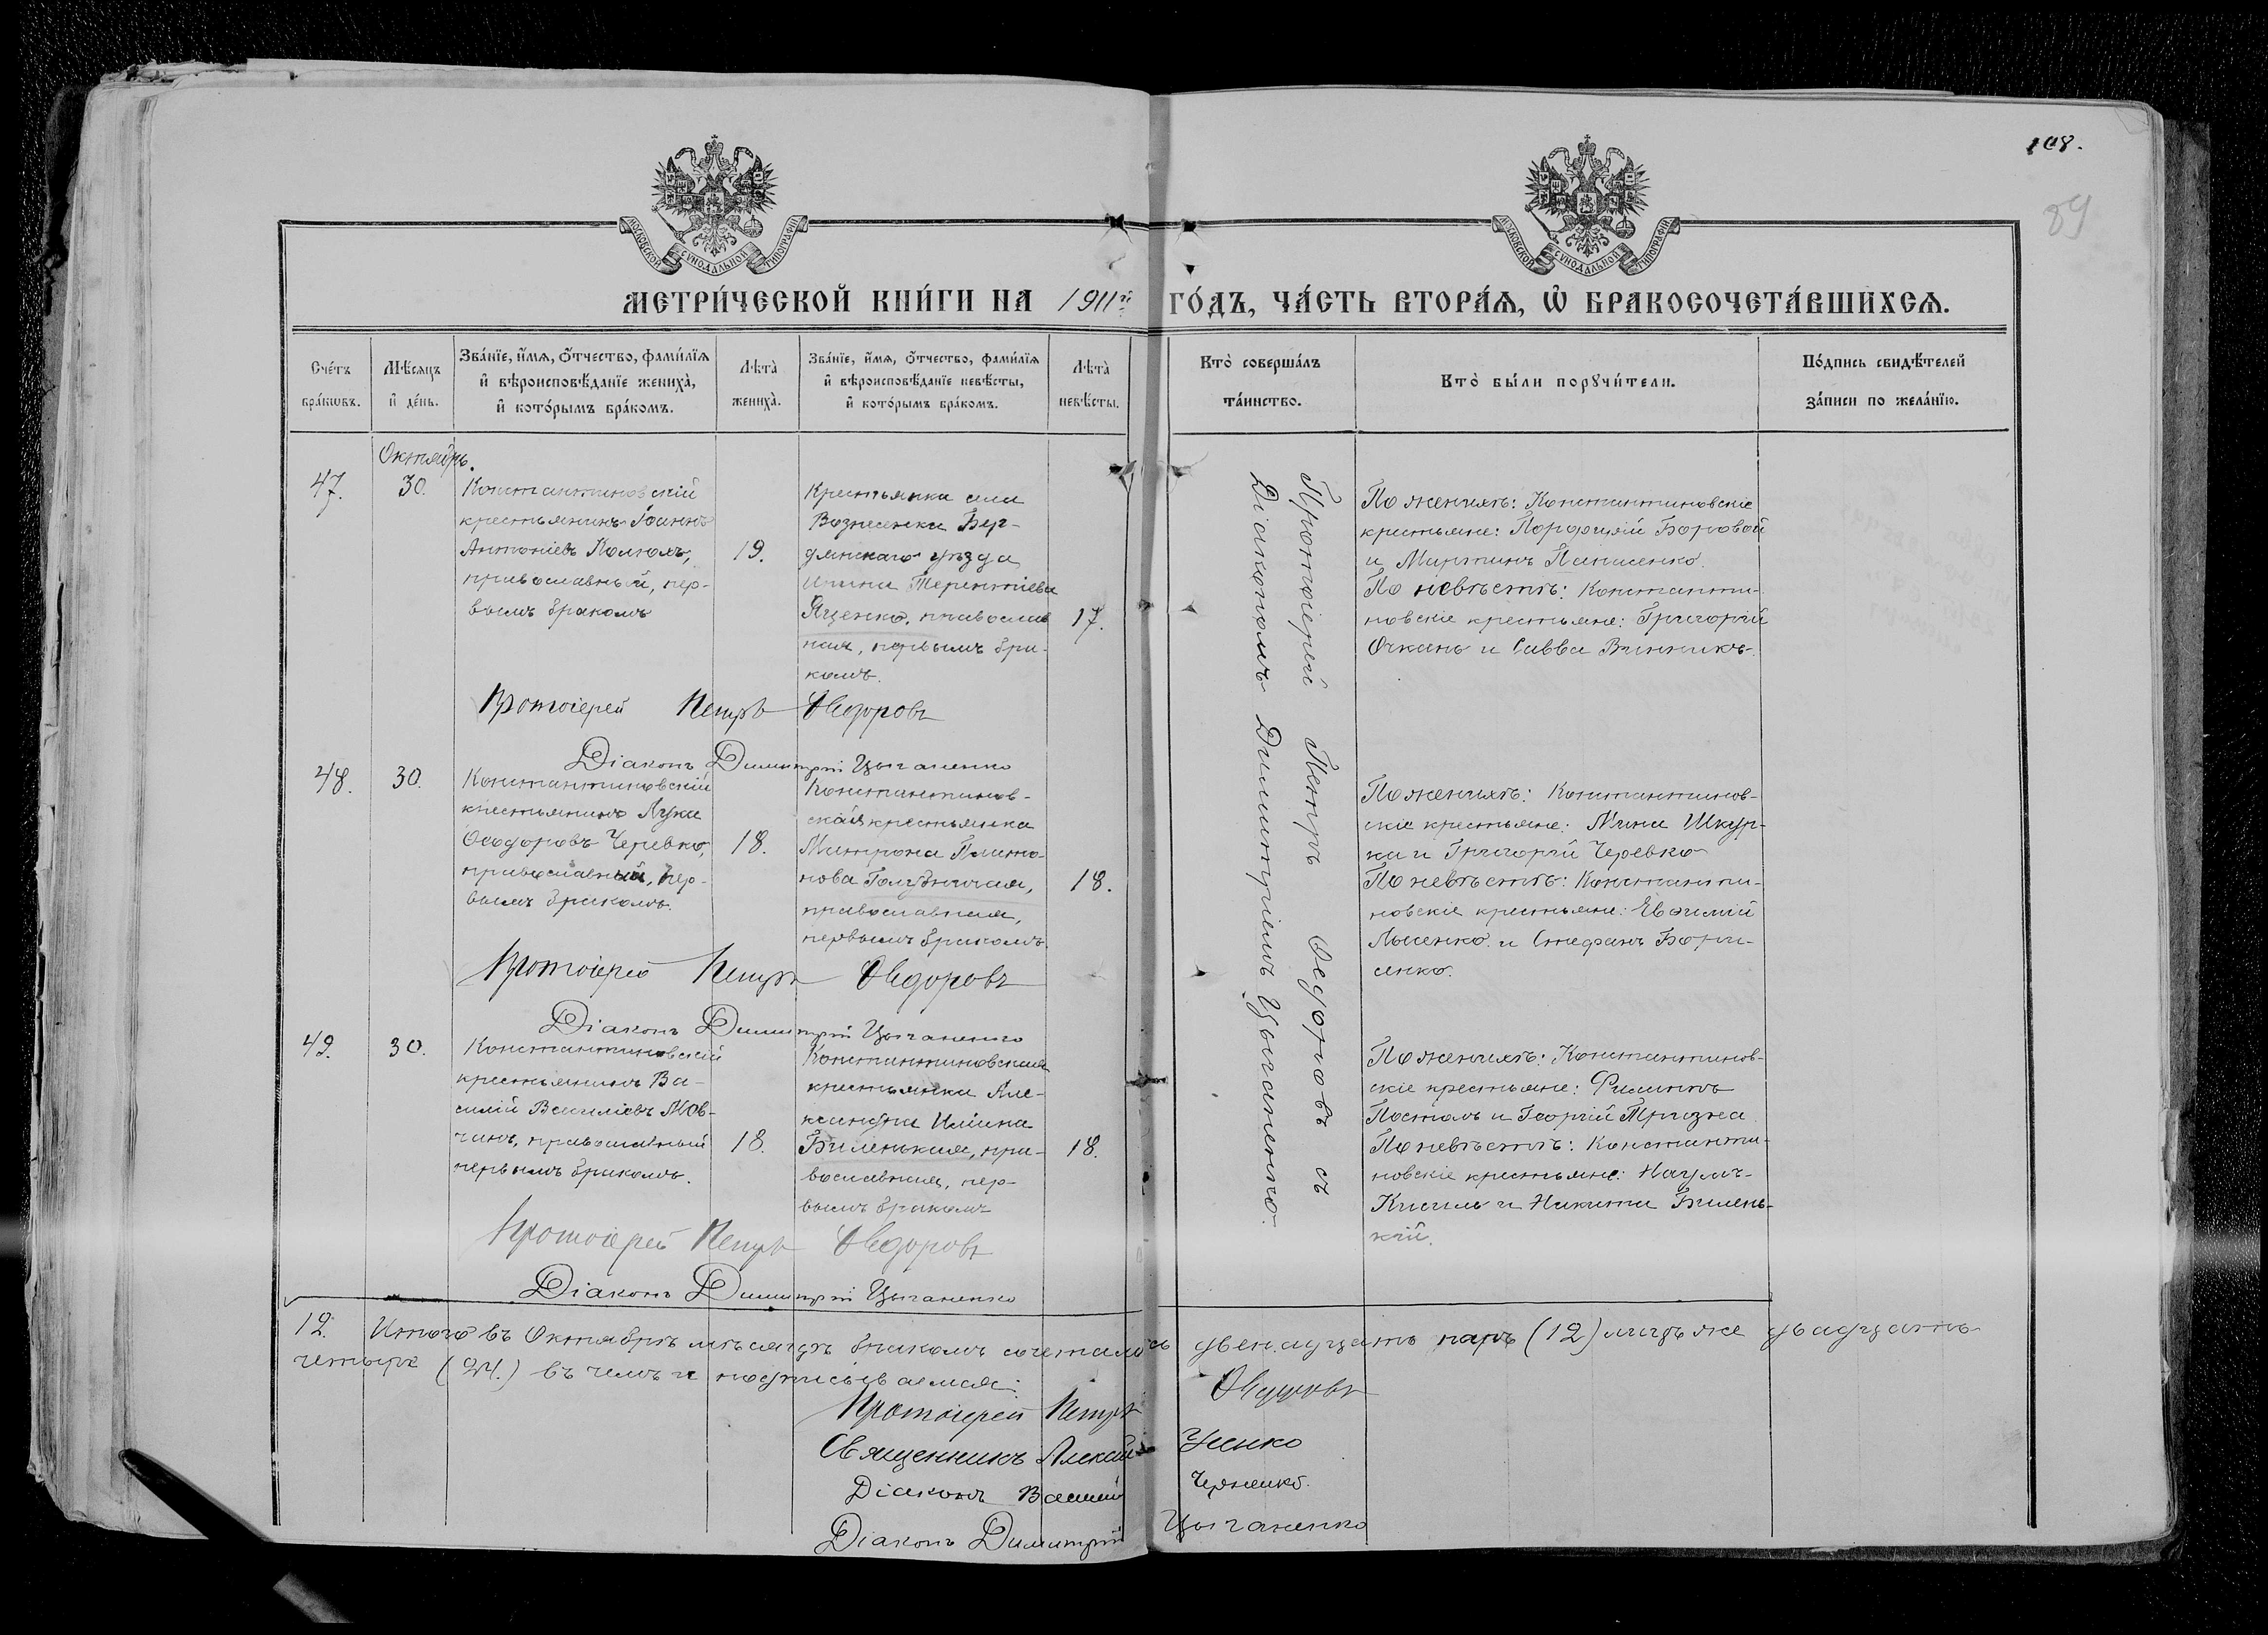 108.
89
МОСКОВСКОЙ СѴНОДАЛЬНОЙ ТИПОГРАФІИ
МОСКОВСКОЙ СѴНОДАЛЬНОЙ ТИПОГРАФІИ
МЕТРИ́ЧЕСКОЙ КНИ́ГИ НА 1911й ГО́ДЪ, ЧА́СТЬ ВТОРА́Ѧ, Ѡ БРАКОСОЧЕТА́ВШИХСѦ.
Сче́тъ
бра́кωвъ.
Мѣ́сѧцъ
и҆ де́нь.
Зва́нїе, и҆́мѧ, ѻ҆́тчество, фами́лїѧ
и҆ вѣроисповѣ́данїе жениха̀,
и҆ кото́рымъ бра́комъ.
Лѣ́та
жениха̀.
Зва́нїе, и҆́мѧ, ѻ҆́тчество, фами́лїѧ
и҆ вѣроисповѣ́данїе невѣ́сты,
и҆ кото́рымъ бра́комъ.
Лѣ́та
невѣ́сты.
Кто̀ соверша́лъ
та́инство.
Кто̀ бы́ли порꙋчи́тели.
По́дпись свидѣ́телей
за́писи по жела́нїю.
Октябрь.
47.
30.
Константиновскій
крестьянинъ Іоаннъ
Антоніевъ Колюхъ,
православный, пер-
вымъ бракомъ
19.
Крестьянка села
Вознесенки Бер-
дянскаго уѣзда
Терентіева
Яценко, православ
ная, первымъ бра-
комъ.
17.
Протоіерей Петръ Ѳедоровъ съ
Діакономъ Димитріемъ Цыганенко.
По женихѣ: Константиновскіе
крестьяне: Порфирій Боровой
и Мартинъ Панасенко.
По невѣстѣ: Константи-
новскіе крестьяне: Григорій
Очкань и Савва Винникъ.
Протоіерей Петръ Ѳедоровъ
Діаконъ Димитрій Цыганенко
48.
30.
Константиновскій
крестьянинъ Лука
Ѳеодоровъ Черевко,
православный, пер-
вымъ бракомъ.
18.
Константинов-
ская крестьянка
Матрона Плато-
нова Голубничая,
православная,
первымъ бракомъ.
18.
По женихѣ: Константинов-
скіе крестьяне: Мина Шкур-
ка и Григорій Черевко
По невѣстѣ: Константи-
новскіе крестьяне: Евѳимій
Лысенко и Стефанъ Бори-
сенко.
Протоіерей Петръ Ѳедоровъ
Діаконъ Димитрій Цыганенко
49.
30.
Константиновскій
крестьянинъ Ва-
силій Василіевъ Мов-
чанъ, православный
первымъ бракомъ.
18.
Константиновская
крестьянка Але-
ксандра Иліина
Биленькая, пра-
вославная, пер-
вымъ бракомъ
18.
По женихѣ: Константинов-
скіе крестьяне: Филиппъ
Посталъ и Георгій Тризна
По невѣстѣ: Константи-
новскіе крестьяне: Наумъ
Кисиль и Никита Билень-
кій.
Протоіерей Петръ Ѳедоровъ
Діаконъ Димитрій Цыганенко
12. Итого въ Октябрѣ мѣсяцѣ бракомъ сочеталось двенадцать паръ (12) лицъ же двадцать
четыре (24.) въ чемъ и подписываемся:
Протоіерей Петръ Ѳедоровъ
Священникъ Алексій Усенко
Діаконъ Василій Черненко.
Діаконъ Димитрій Цыганенко